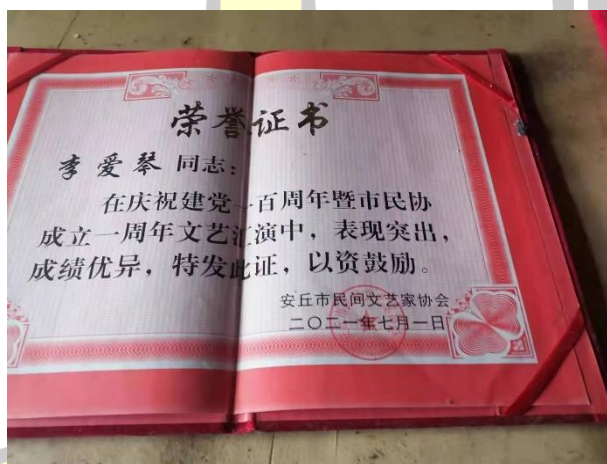 荣誉证书
李爱琴 同志：
在庆祝建党一百周年暨市民协
成立一周年文艺汇演中，表现突出，
成绩优异，特发此证，以资鼓励。
安丘市民间文艺家协会
二〇二一年七月一日